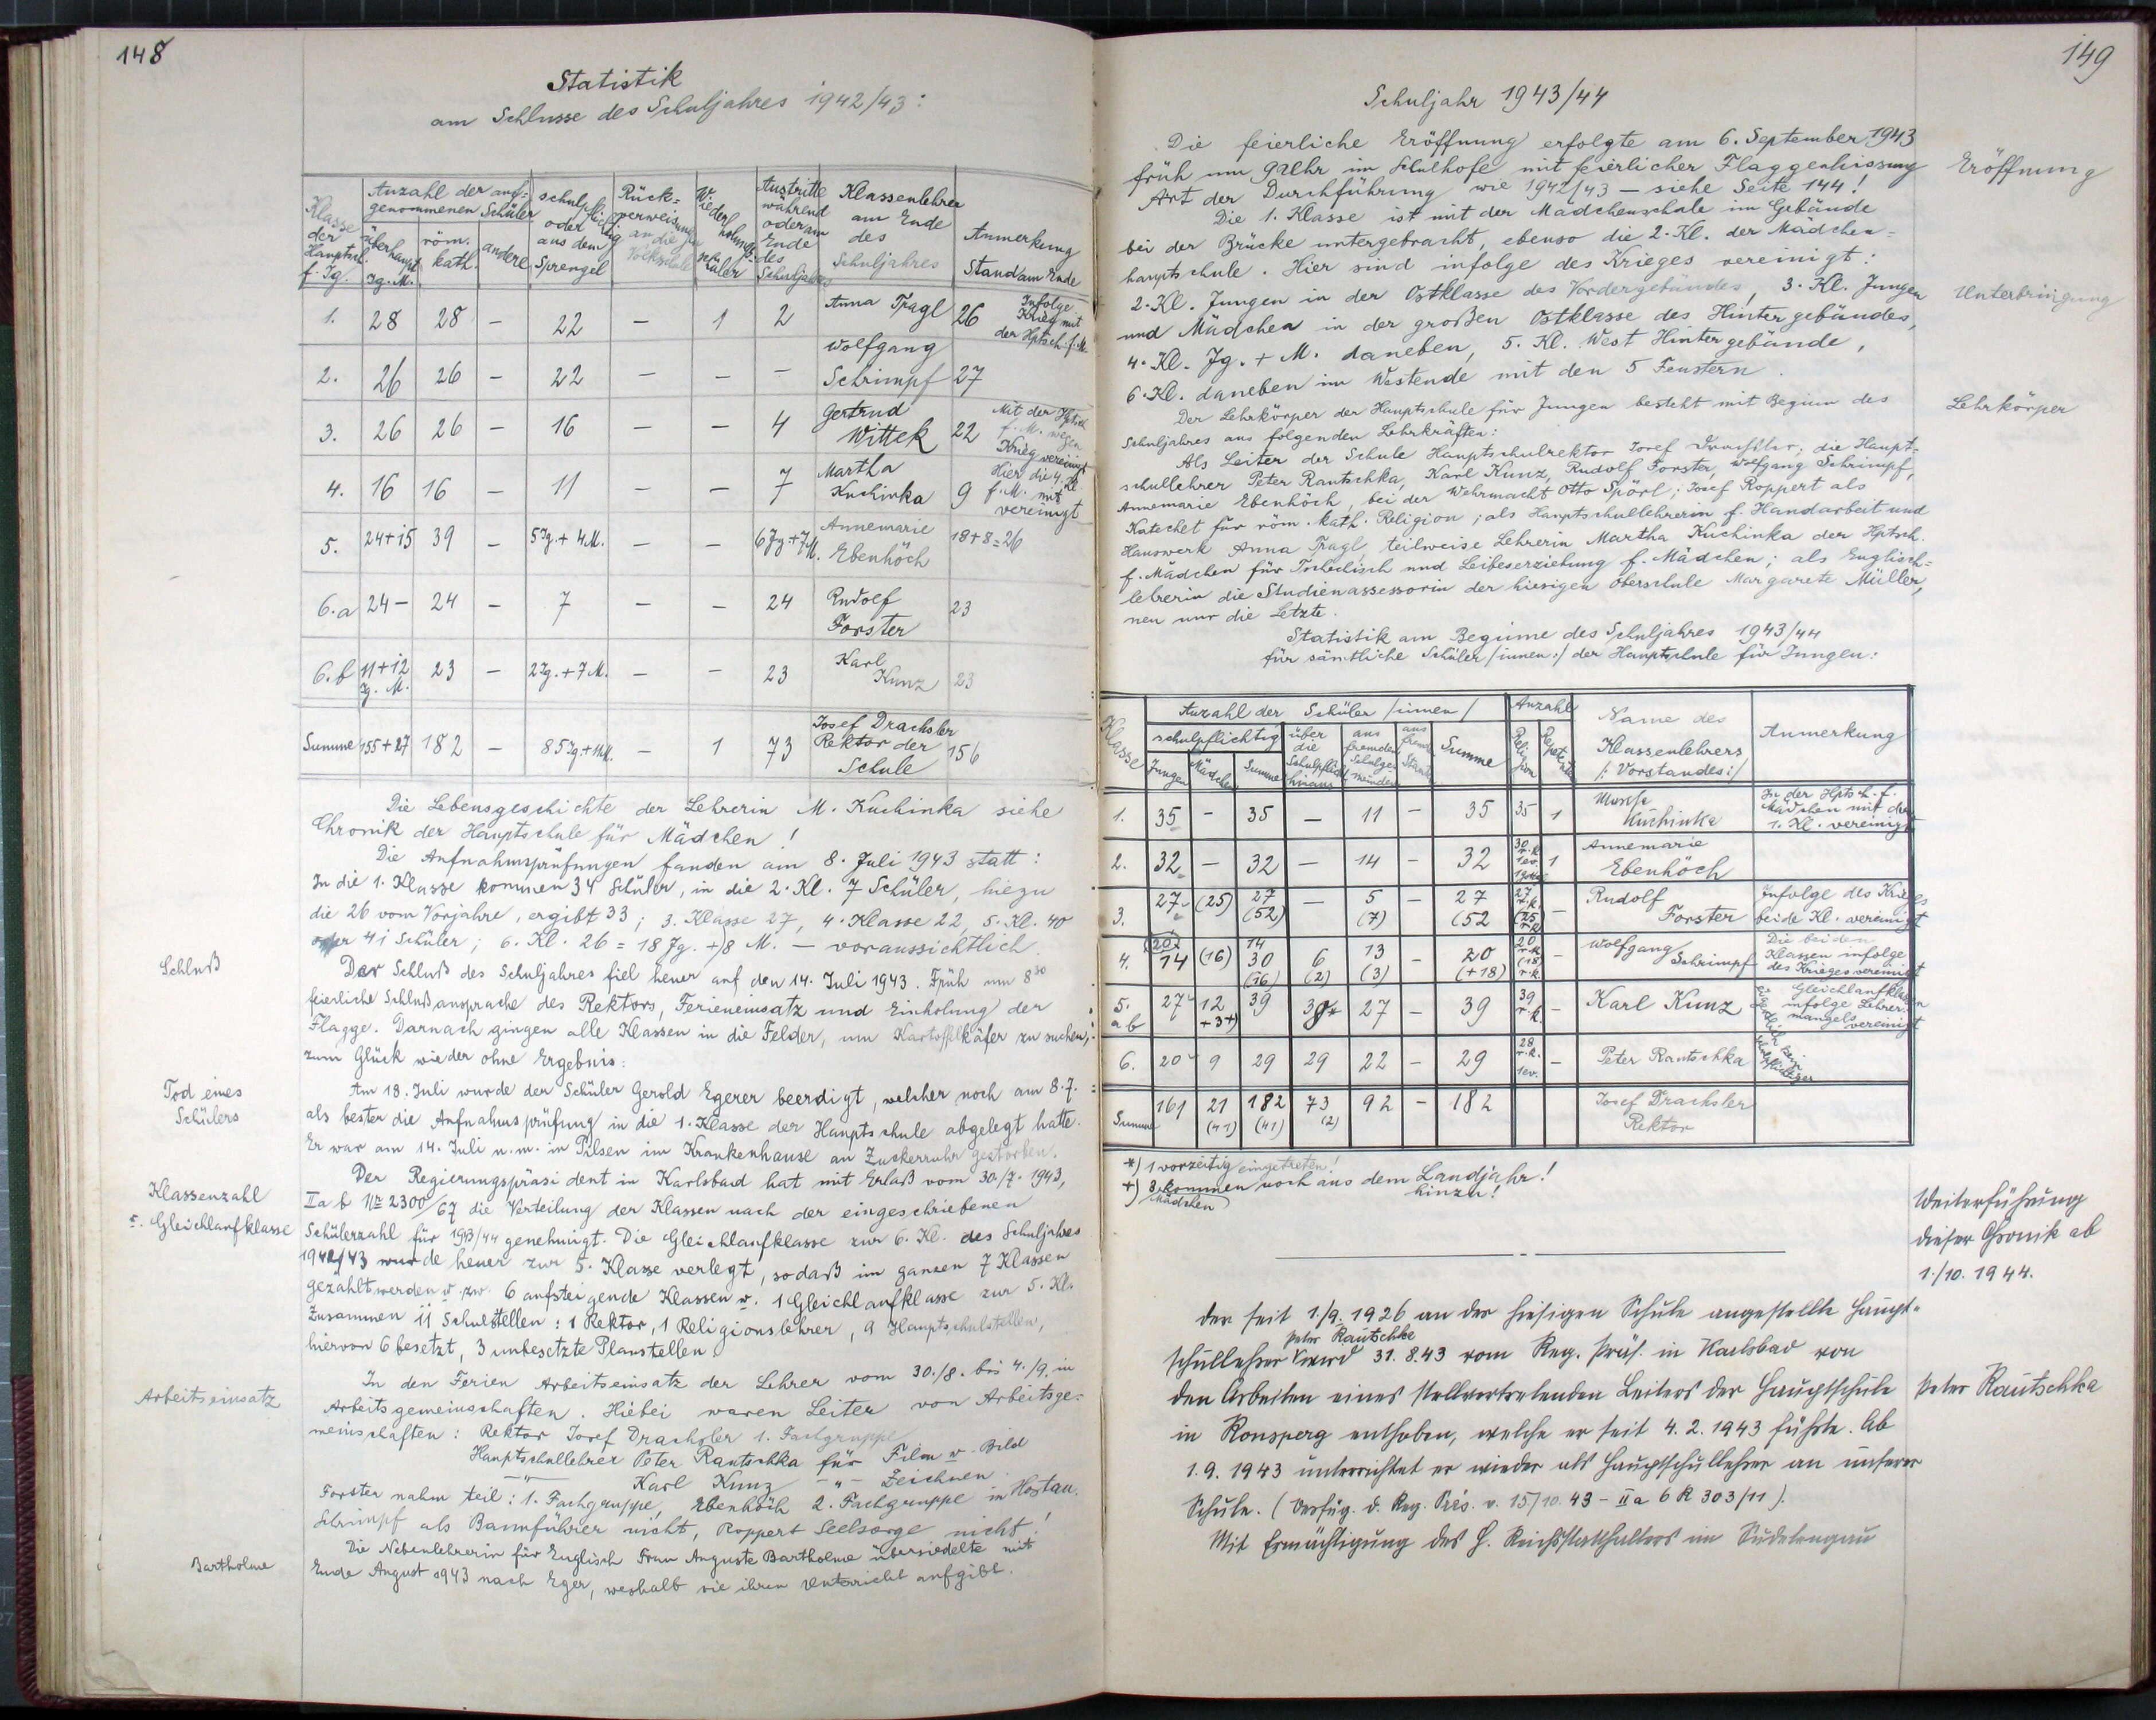 148
Statistik
am Schlusse des Schuljahres 1942/43:
Klasse der Hauptsch. f. Jg. | Anzahl der auf- genommenen Schüler: überhaupt Jg. M. | röm. kath. | andere | schulpflichtig oder aus dem Sprengel | Rück- verweisungen an die Volksschule | Wiederholungs- schüler | Austritte während oder am Ende des Schuljahres | Klassenlehrer am Ende des Schuljahres | Anmerkung Stand am Ende
1. | 28 | 28 | – | 22 | – | 1 | 2 | Anna Tragl | 26 Infolge Krieg mit der Hptsch. f. M.
2. | 26 | 26 | – | 22 | – | – | – | Wolfgang Schrimpf | 27
3. | 26 | 26 | – | 16 | – | – | 4 | Gertrud Wittek | 22 Mit der Hptsch. f. M. wegen Krieg vereinigt
4. | 16 | 16 | – | 11 | – | – | 7 | Martha Kuchinka | 9 Hier die 4. Kl. f. M. mit vereinigt
5. | 24+15 | 39 | – | 5 Jg. + 4 M. | – | – | 6 Jg + 7 M. | Annemarie Ebenhöch | 18+8=26
6.a | 24 – | 24 | – | 7 | – | – | 24 | Rudolf Forster | 23
6.b | 11+12 Jg. M. | 23 | – | 2 Jg. + 7 M. | – | – | 23 | Karl Kunz | 23
Summe | 155+27 | 182 | – | 85 Jg. + 11 M. | – | 1 | 73 | Josef Drachsler Rektor der Schule | 156
Die Lebensgeschichte der Lehrerin M. Kuchinka siehe
Chronik der Hauptschule für Mädchen!
Die Aufnahmsprüfungen fanden am 8. Juli 1943 statt:
In die 1. Klasse kommen 34 Schüler, in die 2. Kl. 7 Schüler, hiezu
die 26 vom Vorjahre, ergibt 33; 3. Klasse 27, 4. Klasse 22, 5. Kl. 40
oder 41 Schüler; 6. Kl. 26 = 18 Jg. + 8 M. – voraussichtlich.
Schluß
Der Schluß des Schuljahres fiel heuer auf den 14. Juli 1943. Früh um 8³⁰
feierliche Schlußansprache des Rektors, Ferieneinsatz und Einholung der
Flagge. Darnach gingen alle Klassen in die Felder, um Kartoffelkäfer zu suchen,
zum Glück wieder ohne Ergebnis.
Tod eines
Schülers
Am 18. Juli wurde der Schüler Gerold Egerer beerdigt, welcher noch am 8.7.
als bester die Aufnahmsprüfung in die 1. Klasse der Hauptschule abgelegt hatte.
Er war am 14. Juli n. m. in Pilsen im Krankenhause an Zuckerruhr gestorben.
Klassenzahl
u. Gleichlaufklasse
Der Regierungspräsident in Karlsbad hat mit Erlaß vom 30./7. 1943,
IIa b № 2300/67 die Verteilung der Klassen nach der eingeschriebenen
Schülerzahl für 1943/44 genehmigt. Die Gleichlaufklasse zur 6. Kl. des Schuljahres
1942/43 wurde heuer zur 5. Klasse verlegt, sodaß im ganzen 7 Klassen
gezählt werden u. zw. 6 aufsteigende Klassen u. 1 Gleichlaufklasse zur 5. Kl.
Zusammen 11 Schulstellen: 1 Rektor, 1 Religionslehrer, 9 Hauptschulstellen,
hiervon 6 besetzt, 3 unbesetzte Planstellen.
Arbeitseinsatz
In den Ferien Arbeitseinsatz der Lehrer vom 30./8. bis 4./9. in
Arbeitsgemeinschaften. Hiebei waren Leiter von Arbeitsge-
meinschaften: Rektor Josef Drachsler 1. Fachgruppe
Hauptschullehrer Peter Rautschka für Film u. Bild
–"– Karl Kunz –"– Zeichnen.
Forster nahm teil: 1. Fachgruppe, Ebenhöch 2. Fachgruppe in Hostau.
Schrimpf als Bannführer nicht, Roppert Seelsorge nicht!
Bartholme
Die Nebenlehrerin für Englisch Frau Auguste Bartholme übersiedelte mit
Ende August 1943 nach Eger, weshalb sie ihren Unterricht aufgibt.
149
Schuljahr 1943/44
Eröffnung
Die feierliche Eröffnung erfolgte am 6. September 1943
früh um 9 Uhr im Schulhofe mit feierlicher Flaggenhissung
Art der Durchführung wie 1942/43 – siehe Seite 144!
Unterbringung
Die 1. Klasse ist mit der Mädchenschule im Gebäude
bei der Brücke untergebracht, ebenso die 2. Kl. der Mädchen-
hauptschule. Hier sind infolge des Krieges vereinigt:
2. Kl. Jungen in der Ostklasse des Vordergebäudes, 3. Kl. Jungen
und Mädchen in der großen Ostklasse des Hintergebäudes,
4. Kl. Jg. + M. daneben, 5. Kl. West Hintergebäude,
6. Kl. daneben im Westende mit den 5 Fenstern.
Lehrkörper
Der Lehrkörper der Hauptschule für Jungen besteht mit Beginn des
Schuljahres aus folgenden Lehrkräften:
Als Leiter der Schule Hauptschulrektor Josef Drachsler; die Haupt-
schullehrer Peter Rautschka, Karl Kunz, Rudolf Forster, Wolfgang Schrimpf,
Annemarie Ebenhöch, bei der Wehrmacht Otto Spörl; Josef Roppert als
Katechet für röm. kath. Religion; als Hauptschullehrerin f. Handarbeit und
Hauswerk Anna Tragl, teilweise Lehrerin Martha Kuchinka der Hptsch.
f. Mädchen für Tschechisch und Leibeserziehung f. Mädchen; als Englisch-
lehrerin die Studienassessorin der hiesigen Oberschule Margarete Müller,
neu nur die Letzte.
Statistik am Beginne des Schuljahres 1943/44
für sämtliche Schüler /innen:/ der Hauptschule für Jungen:
Klasse | Anzahl der Schüler /innen/ : schulpflichtig Jungen | Mädchen | Summe | über die Schulpflicht hinaus | aus fremden Schulge- meinden | aus fremd. Staaten | Summe | Anzahl Religion | Repetenten | Name des Klassenlehrers /: Vorstandes :/ | Anmerkung
1. | 35 | – | 35 | – | 11 | – | 35 | 35 | 1 | Kuchinka | In der Hptsch. f. Mädchen mit der 1. Kl. vereinigt
2. | 32 | – | 32 | – | 14 | – | 32 | 30 r.k. 1 ev. | 1 | Annemarie Ebenhöch
3. | 27 | (25) | 27 (52) | – | 5 (7) | – | 27 (52 | 27 r.k. (25 r.k.) | – | Rudolf Forster | Infolge des Krieges beide Kl. vereinigt
4. | (20) 14 | (16) | 14 30 (16) | 6 (2) | 13 (3) | – | 20 (+18) | 20 r.k. (18) r.k. | – | Wolfgang Schrimpf | Die beiden Klassen infolge des Krieges vereinigt
5. a b | 27 | 12 +3+) | 39 | 38* | 27 | – | 39 | 39 r.k. | – | Karl Kunz | Gleichlaufklassen infolge Lehrer- mangels vereinigt
6. | 20 | 9 | 29 | 29 | 22 | – | 29 | 28 r.k. 1 ev. | – | Peter Rautschka
Summe | 161 | 21 (41) | 182 (41) | 73 (2) | 92 | – | 182 | Josef Drachsler Rektor
*) 1 vorzeitig eingetreten!
+) 3 Mädchen kommen noch aus dem Landjahr hinzu!
Weiterführung
dieser Chronik ab
1./10. 1944.
Der seit 1./9. 1926 an der hiesigen Schule angestellte Haupt-
schullehrer Peter Rautschka wird 31.8.43 vom Reg. Präs. in Karlsbad von
Peter Rautschka
den Arbeiten eines stellvertretenden Leiters der Hauptschule
in Ronsperg enthoben, welche er seit 4.2.1943 führte. Ab
1.9.1943 unterrichtet er wieder als Hauptschullehrer an unserer
Schule. (Verfüg. d. Reg. Präs. v. 15./10. 43 – IIa 6 R 303/11).
Mit Ermächtigung des H. Reichsstatthalters im Sudetengau